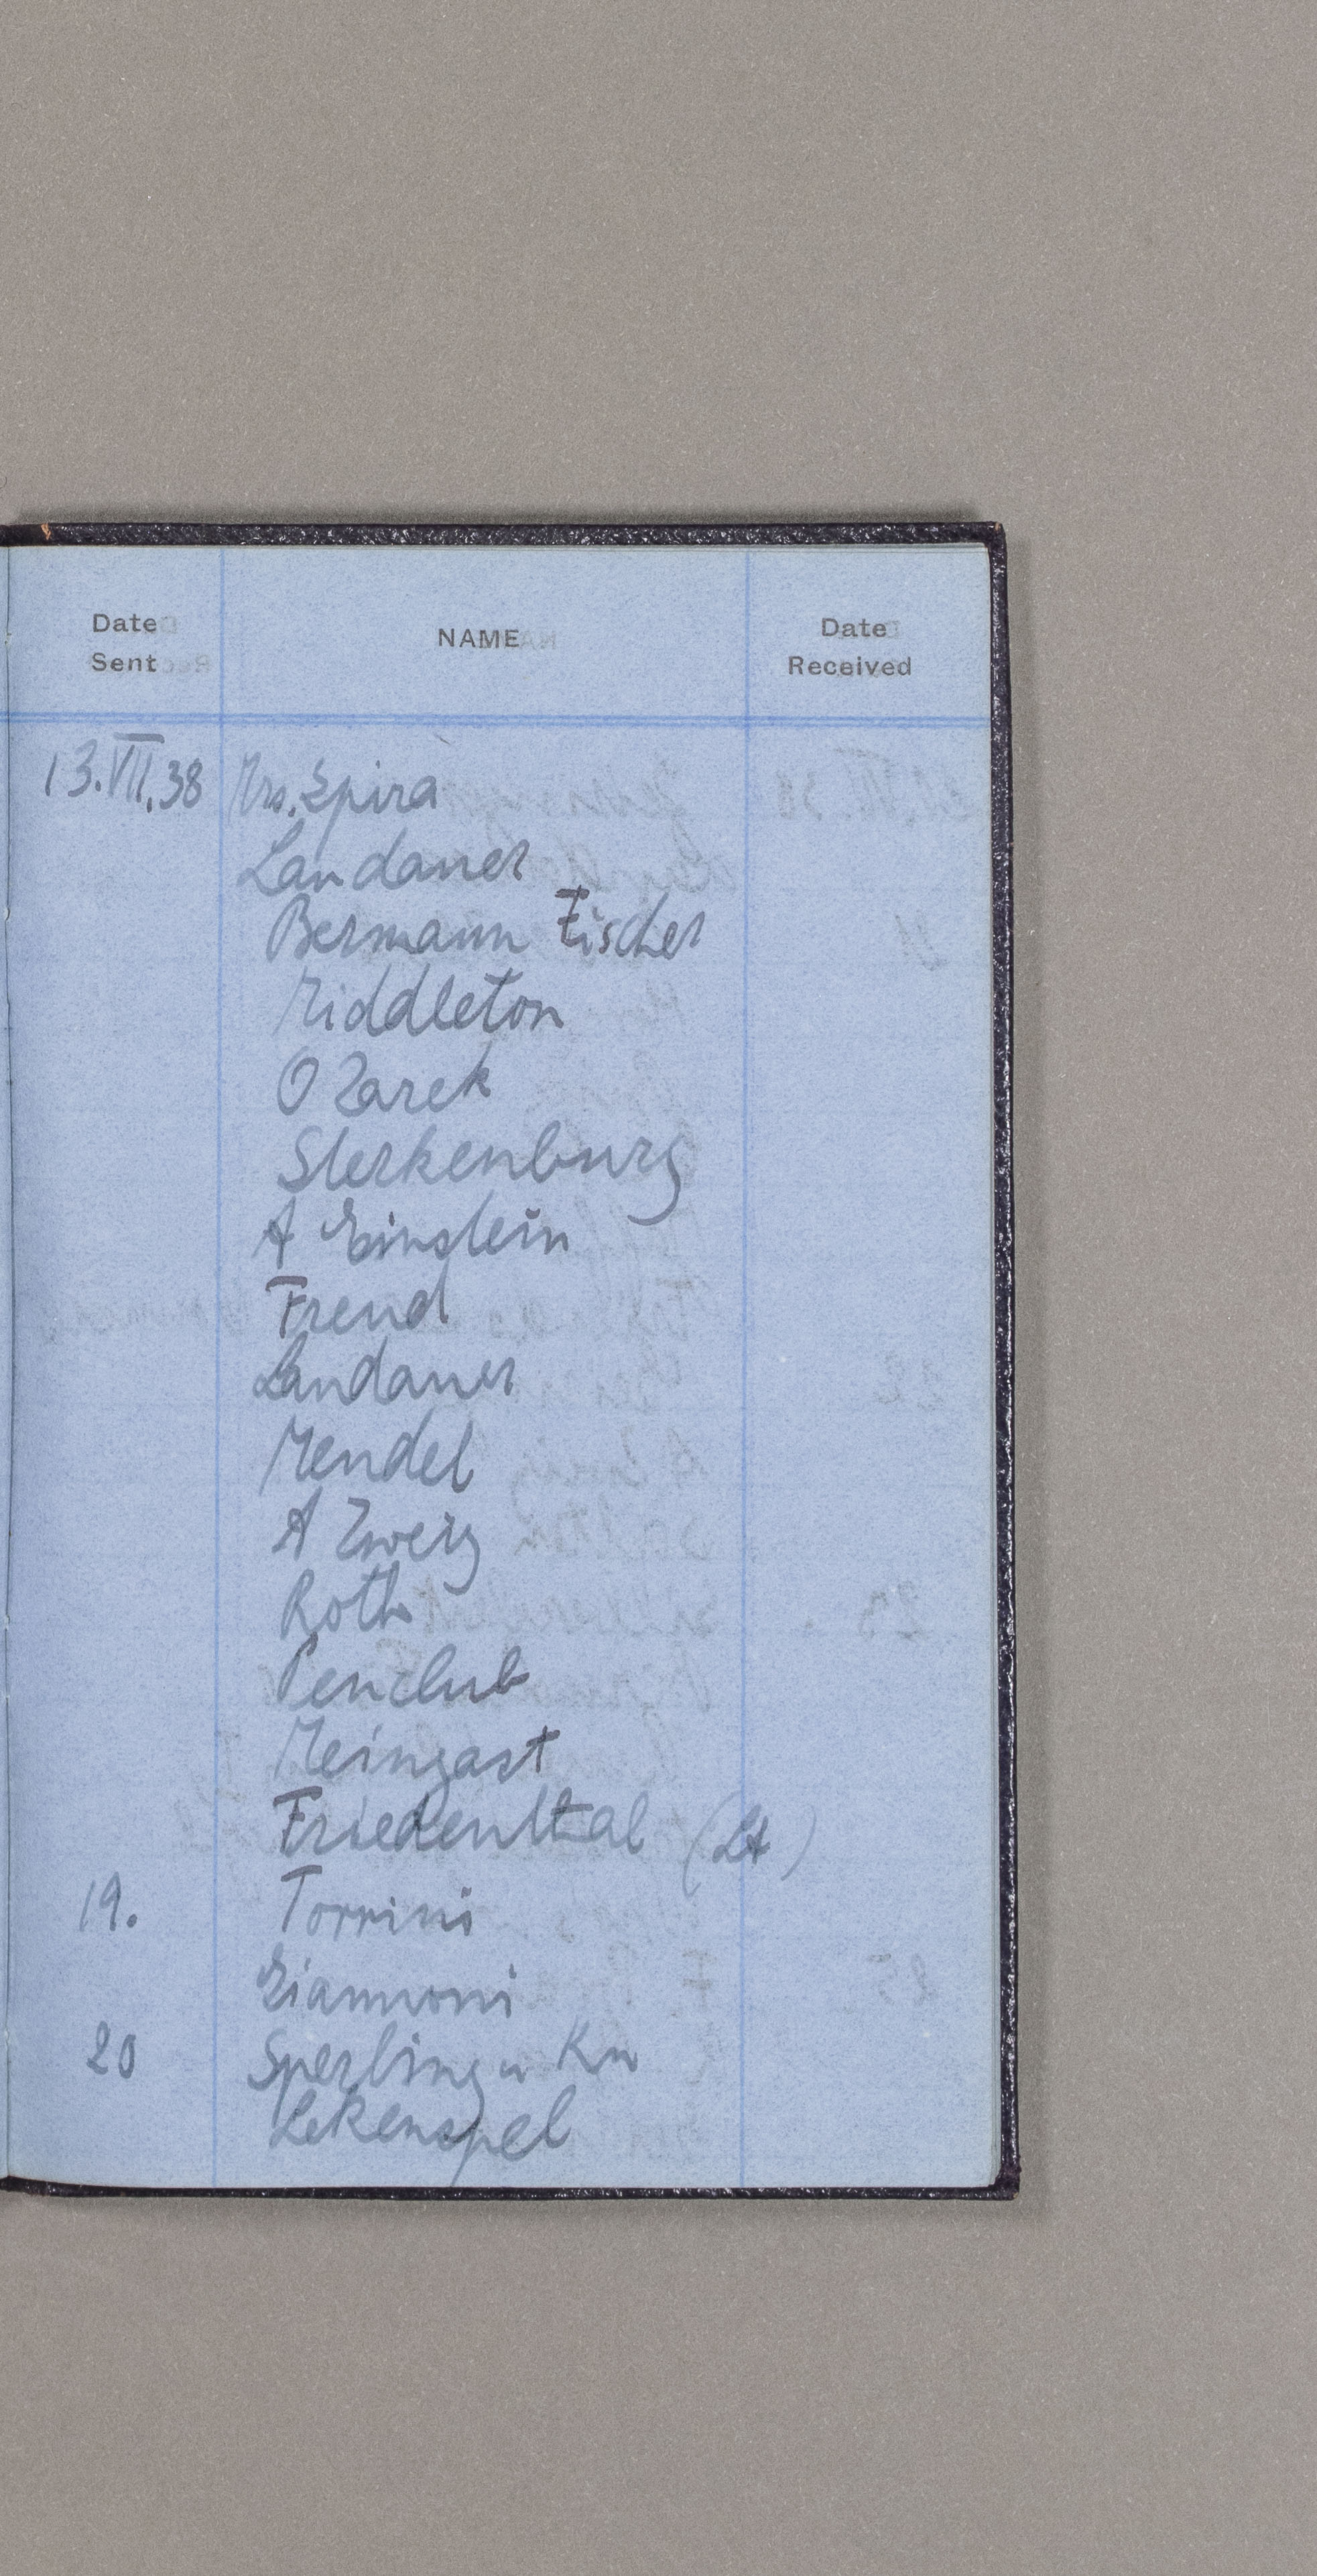 Date Sent NAME Date Received
13.VII.38 Mrs. Spira
Landauer
Bermann Fischer
Middleton
O Zarek
Sterkenburg
A Einstein
Freud
Landauer
Mendel
A Zweig
Roth
Penclub
Meingast
Friedenthal (Lt)
19. Torrini
Giannoni
20 Sperling u Kn